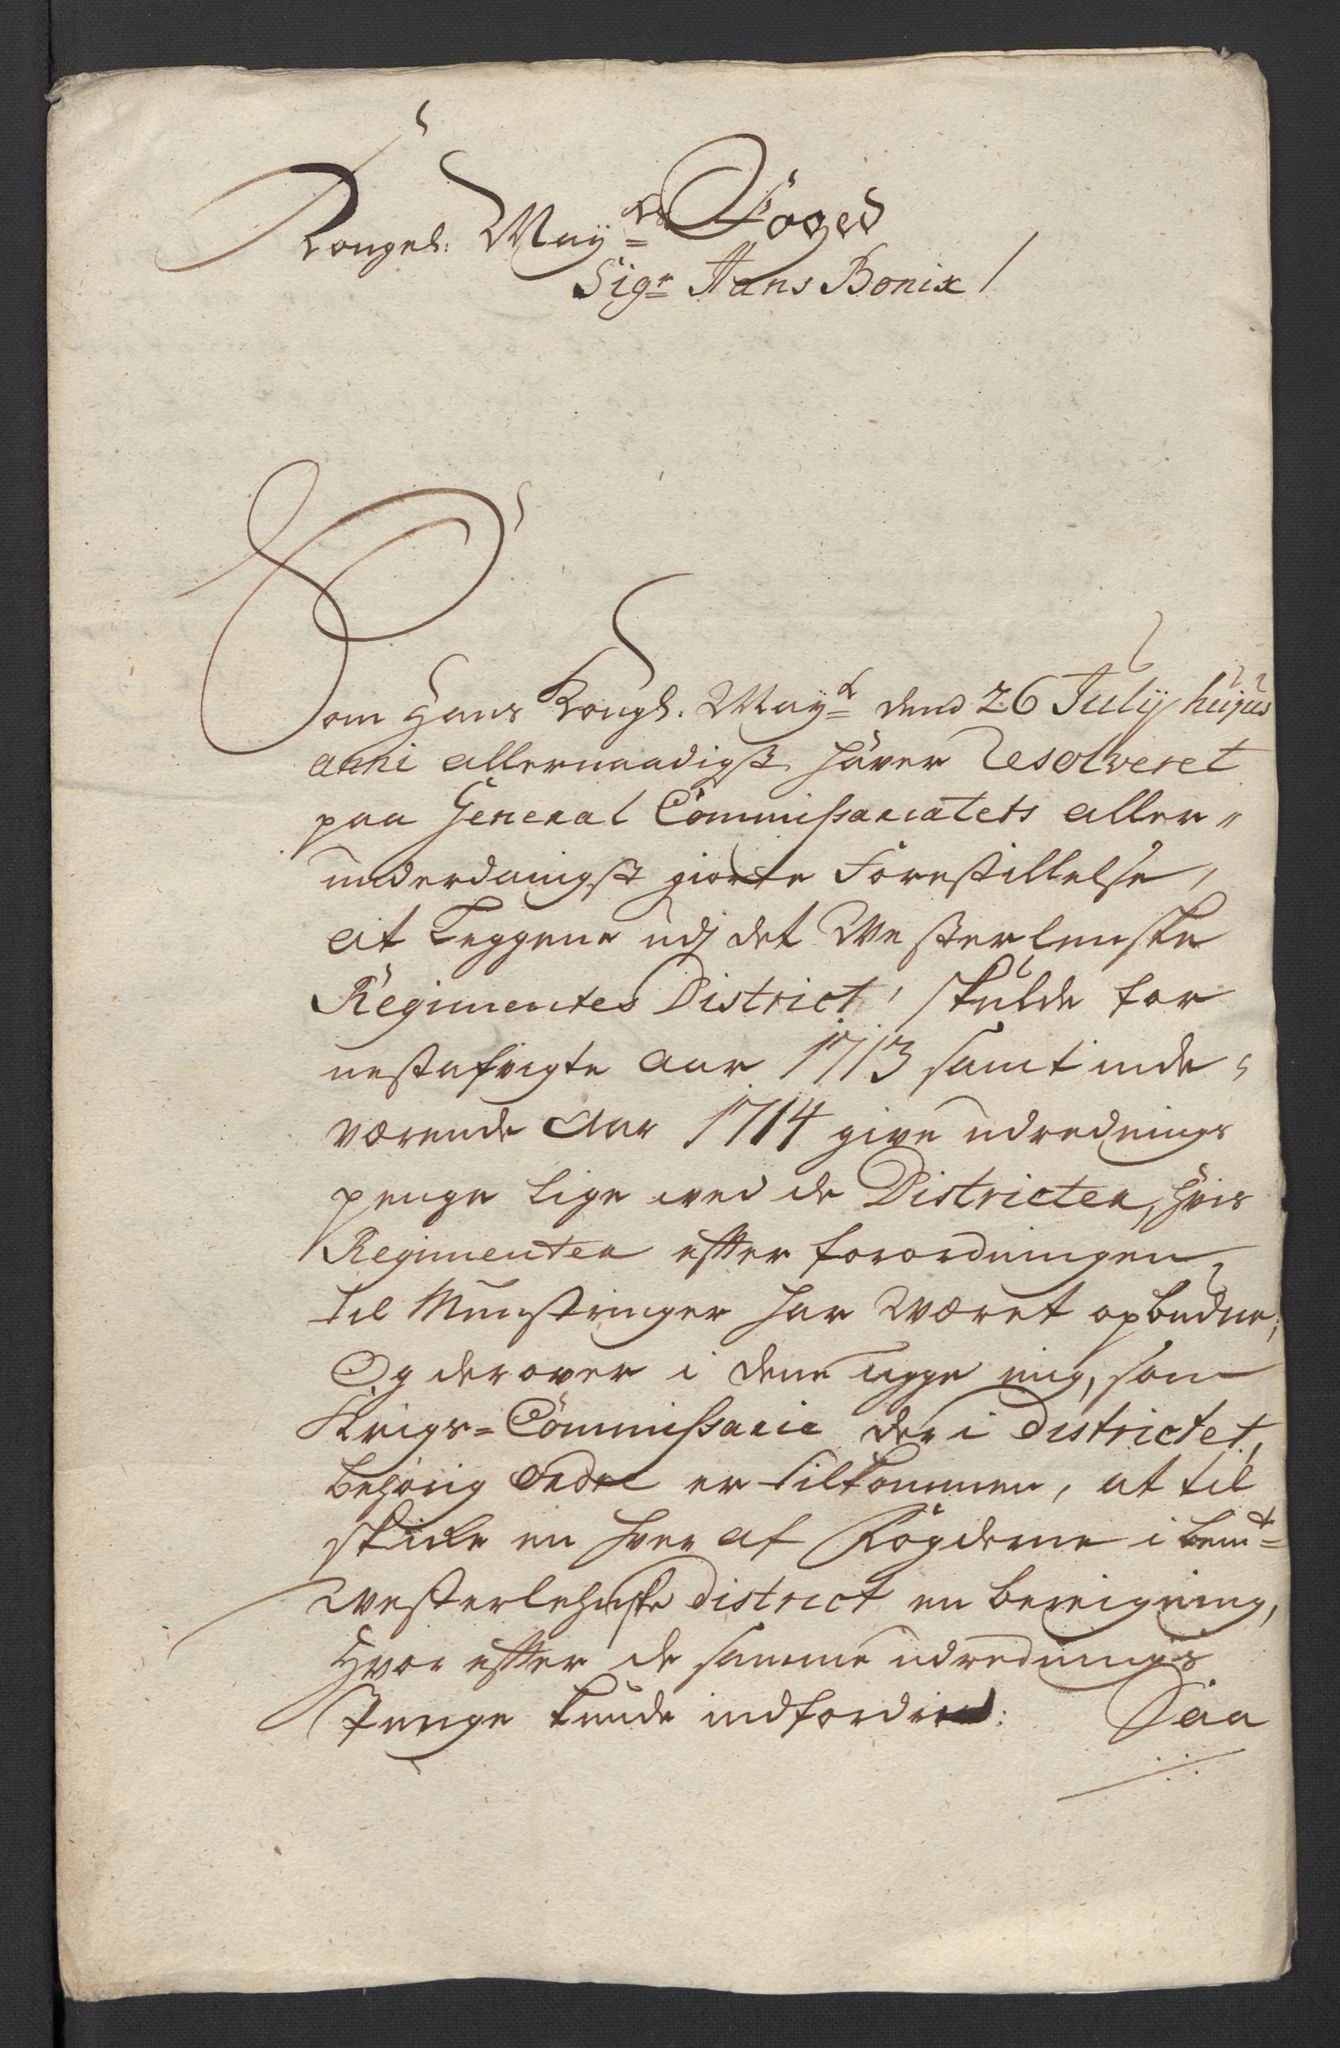 Kongel: May=ts Foged
Sigr Hans Bonix /
Som Hans Kongl. May=t dend 26 July hujus
anni allernaadigst haver Resolveret
paa General Commissariatets aller=
underdanigst giorte Forestillelse,
at Leggene udj det Westerlenske
Regimentes District, skulde for
nestafvigte Aar 1713 samt inde=
værende Aar 1714 give udrednings
penge lige ved de Districter, hvis
Regimenter efter forordningen
til Munstringer har Wæret opbudne,
Og derover i dene uge mig, som
Krigs=Commissarie der i Districtet,
behørig Ordre er tilkommen, at til
skicke en hver af Fogderne i bem=te
Westerlehnske District en bereigning,
Hvor efter de samme udrednings
Penge kunde indfordres: Saa